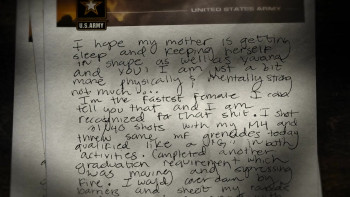 U.S. ARMY
UNITED STATES ARMY
I hope my mother is getting
sleep and keeping herself
in shape as well as
and you! I am just a bit
more physically & mentally strong
not much...
I'm the fastest female I could
tell you that and I am
recognized for that shit. I shot
shots with my M4 and
threw some MF grenades today
qualified like a in both
activities. Completed another
graduation requirement which
was moving and
fire. I
barriers and shoot my